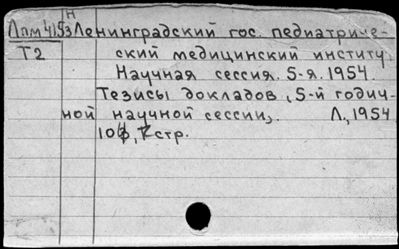 н
Лпм4153 Ленинградский гос. педиатриче-
Т2 ский медицинский институт.
Научная сессия. 5-я. 1954.
Тезисы докладов, 5-й годич-
ной научной сессии,. Л., 1954
стр.